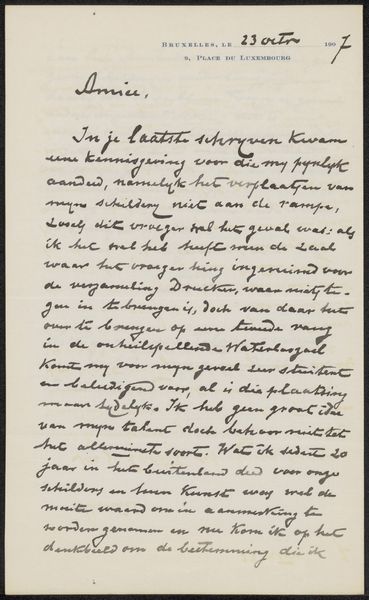 BRUXELLES, LE 23 octr 1907
9, PLACE DU LUXEMBOURG
Amice,
In je laatste schryven kwam
eene kennisgeving voor die my pynlyk
aandeed, namelyk het verplaatsen van
myn schildery niet aan de rampe,
zooals dit vroeger wel het geval was: als
ik het wel heb heeft men de zaal
waar het vroeger hing ingeruimd voor
de verzameling Drucker, waar niets te-
gen in te brengen is, doch van daar het
over te brengen op eene tweede rang
in de onheilspellende Waterloozaal
komt my voor myn gevoel zeer stuitent
en beledigend voor, al is die plaatsing
maar tydelyk. Ik heb geen groot idee
van myn talent doch behoor niet tot
het allerminste soort. Wat ik sedert 20
jaar in het buitenland deed voor onze
schilders en hun Kunst was wel de
moeite waard om in aanmerking te
worden genomen en nu kom ik op het
denkbeeld om de bestemming die ik